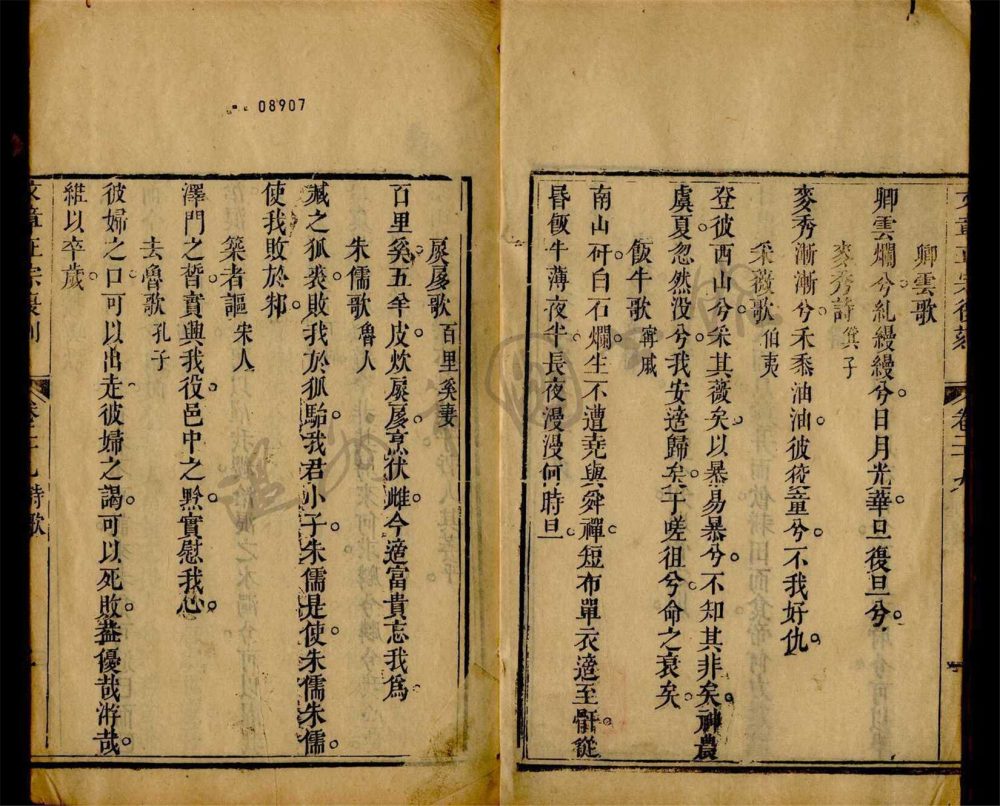 卿雲歌
卿雲爛兮糺縵縵兮日月光華旦復旦兮
麥秀詩 箕子
麥秀漸漸兮禾黍油油彼狡童兮不我好仇
采薇歌 伯夷
登彼西山兮采其薇矣以暴易暴兮不知其非矣神農
虞夏忽然没兮我安適歸矣于嗟徂兮命之衰矣
飯牛歌 甯戚
南山矸白石爛生不遭堯與舜禪短布單衣適至骭從
昏飯牛薄夜半長夜漫漫何時旦
08907
扊扅歌 百里奚妻
百里奚五羊皮炊扊扅烹伏雌今適富貴忘我爲
朱儒歌 魯人
臧之狐裘敗我於狐駘我君小子朱儒是使朱儒朱儒
使我敗於邾
築者謳 宋人
澤門之晳實興我役邑中之黔實慰我心
去魯歌 孔子
彼婦之口可以出走彼婦之謁可以死敗葢優哉游哉
維以卒歲
詩歌